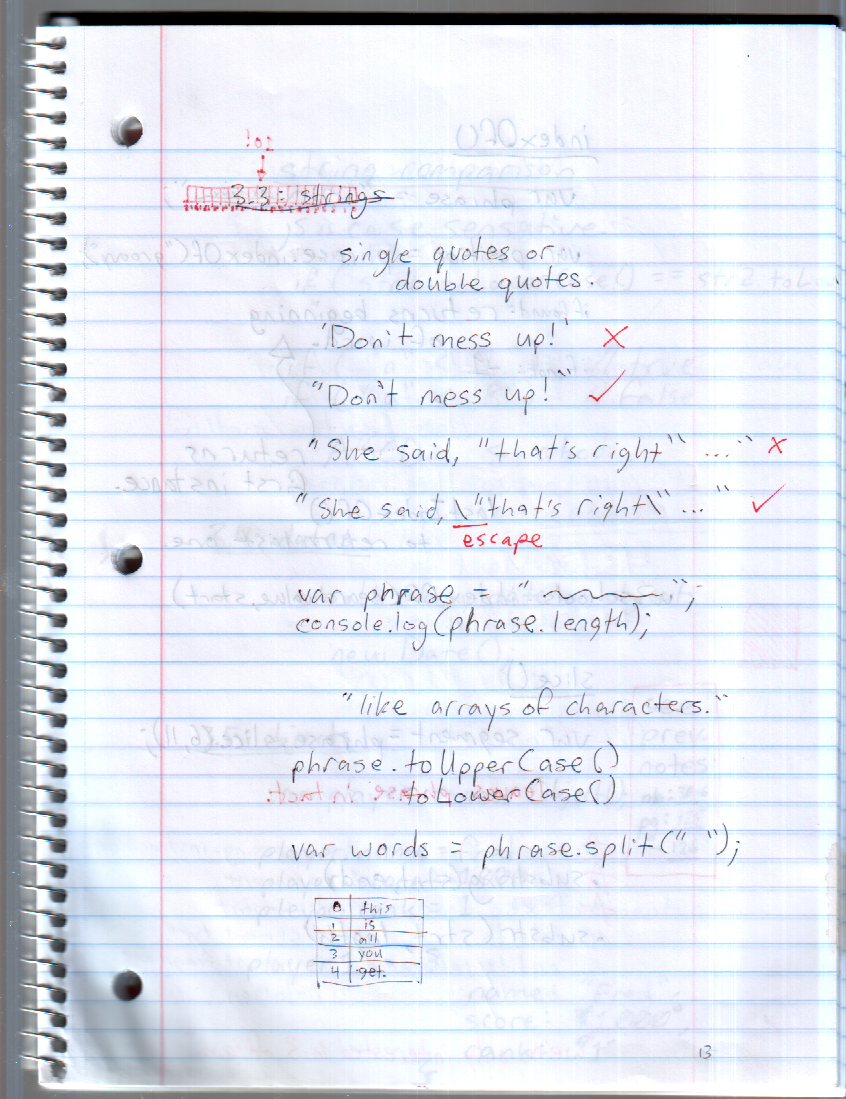 3.3: strings
single quotes or
double quotes.
'Don't mess up!' X
"Don't mess up!" ✓
"She said, "that's right" ..." X
"She said, \"that's right\" ... " ✓
escape
var phrase = " ";
console.log(phrase.length);
"like arrays of characters."
phrase.toUpperCase()
.toLowerCase()
var words = phrase.split(" ");
0 this
1 is
2 all
3 you
4 get.
13